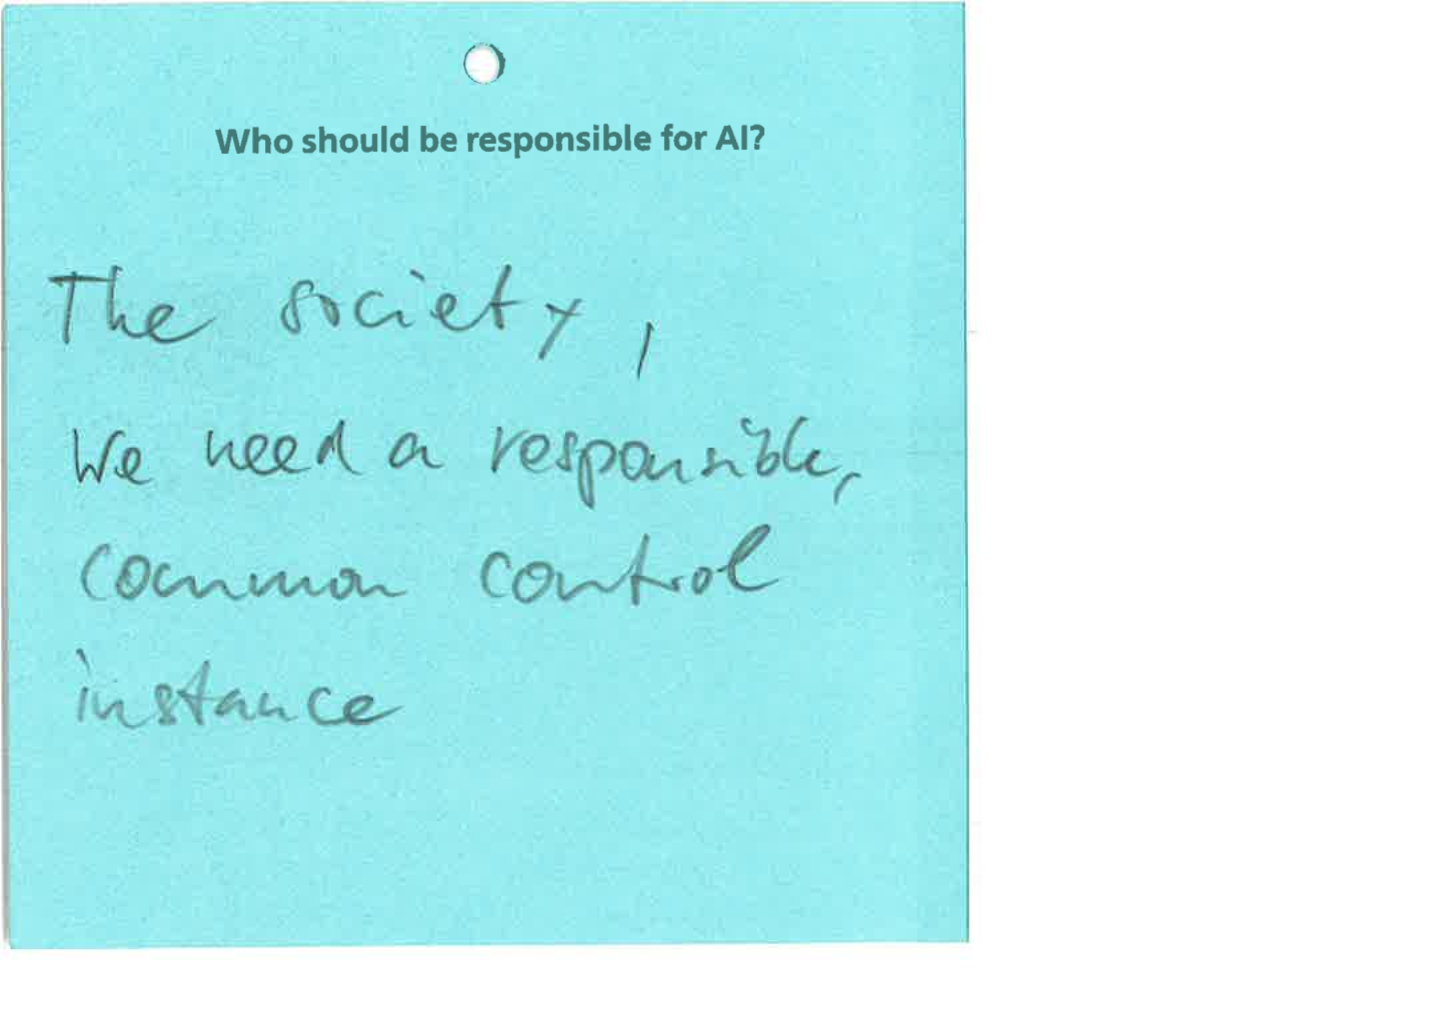 Who should be responsible for AI?
The society,
We need a responsible,
common control
instance